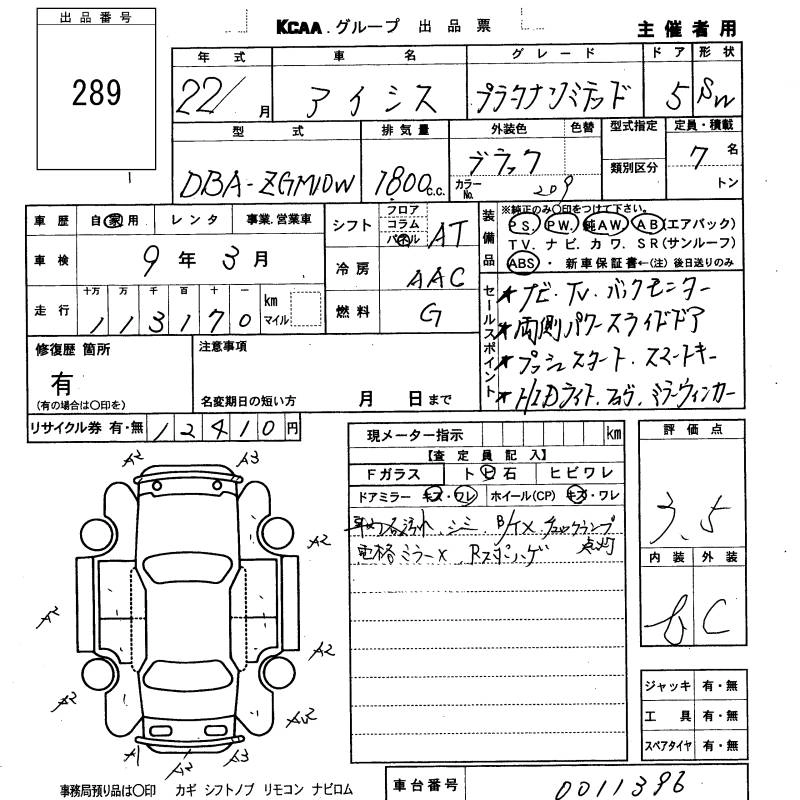 出品番号
KCAA.グループ 出品票
主催者用
289
年式 車名 グレード ドア 形状
22/ 月 アイシス プラタナリミテッド 5 SW
型式 排気量 外装色 色替 型式指定 定員・積載
DBA-ZGM10W 1800 c.c. ブラック
カラーNo. 209
類別区分
7 名
トン
車歴 自家用 レンタ 事業.営業車
車検 9年 3月
走行 十万 万 千 百 十 一
113170 km マイル
シフト フロア コラム パネル AT
冷房 AAC
燃料 G
装備品
※純正のみ○印をつけて下さい。
PS. PW. 純AW. AB(エアバック)
TV. ナビ. カワ. SR(サンルーフ)
ABS. 新車保証書←(注)後日送りのみ
セールスポイント
★ナビ.TV.バックモニター
★両側パワースライドドア
★プッシュスタート.スマートキー
★HIDライト.フォグ.ミラーウィンカー
修復歴 箇所
有
(有の場合は○印を)
注意事項
名変期日の短い方 月 日まで
リサイクル券 有・無 12410円
現メーター指示 km
【査定員記入】
Fガラス ト ビ 石 ヒビワレ
ドアミラー キズ・ワレ ホイール(CP) キズ・ワレ
シミ チェックランプ
点灯
電格ミラー×
評価点
3.5
内装 外装
C
ジャッキ 有・無
工具 有・無
スペアタイヤ 有・無
A2 A3
A2
A2
A2
A2
A2
A1 A2 A3
事務局預り品は○印 カギ シフトノブ リモコン ナビロム
車台番号 0011396